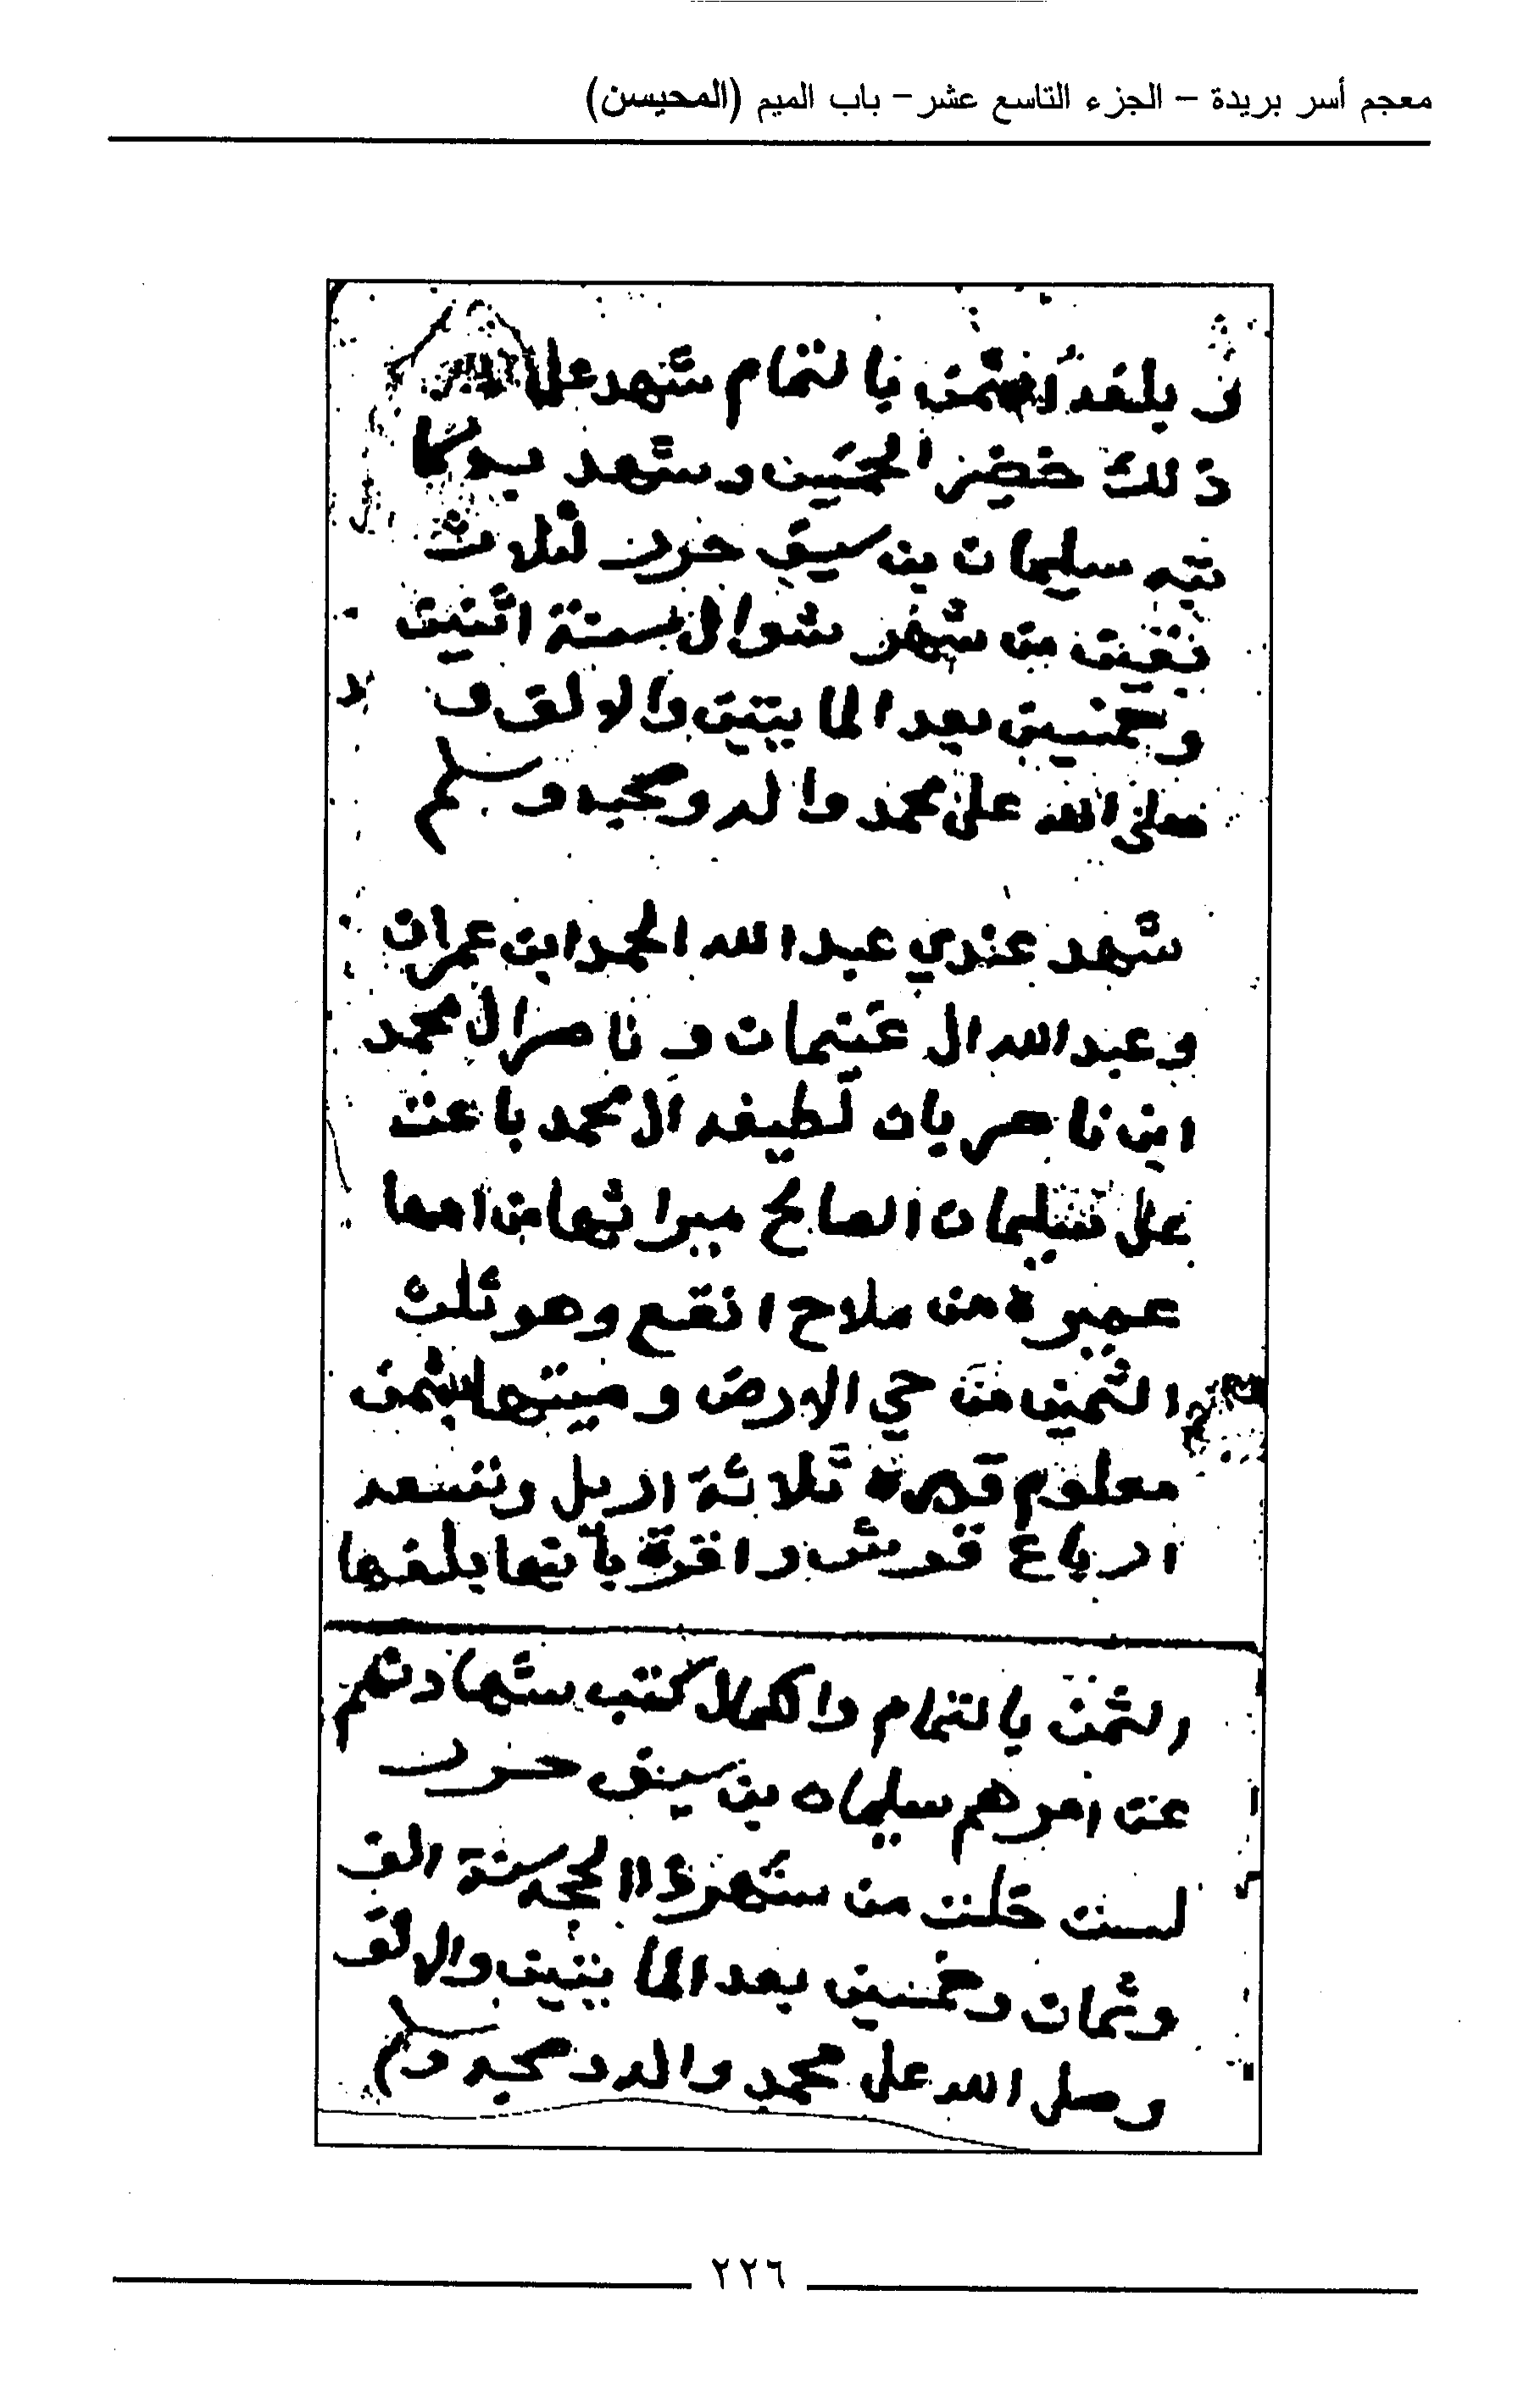 معجم أسر بريدة – الجزء التاسع عشر – باب الميم (المحيسن)
و بلغه الثمن بالتمام شهد على
ذلك خضير المحيسن وشهد به وكا
تبه سليمان بن سيف حرر لثلاث
بقين من شهر شوال سنة اثنين
وخمسين بعد المايتين والالف و
صلى الله على محمد واله وصحبه وسلم
شهد عندي عبدالله الحمد ابن عمران
وعبدالله ال عثيمان و ناصر ال محمد
ابن ناصر بان لطيفه ال محمد باعت
على سليمان الصالح ميراثها من امها
عميرة من ملاح انقع وهو ثلث
الثمين من حي الارض وميتها بثمن
معلوم قدره ثلاثة اريل وتسعه
ارباع قروش واقرة بانها بلغها
الثمن بالتمام والكمال كتب شهادتهم
عن امرهم سليمان بن سيف حرر
لست خلت من شهر ذا الحجه سنة الف
وثمان وخمسين بعد المايتين والالف
وصلى الله على محمد واله وصحبه وسلم
٢٢٦